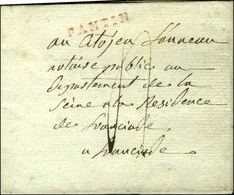 PANTIN
au Citoyen Lanneau
notaise public au
Departement de la
Seine a la Residence
de franciade
a franciade